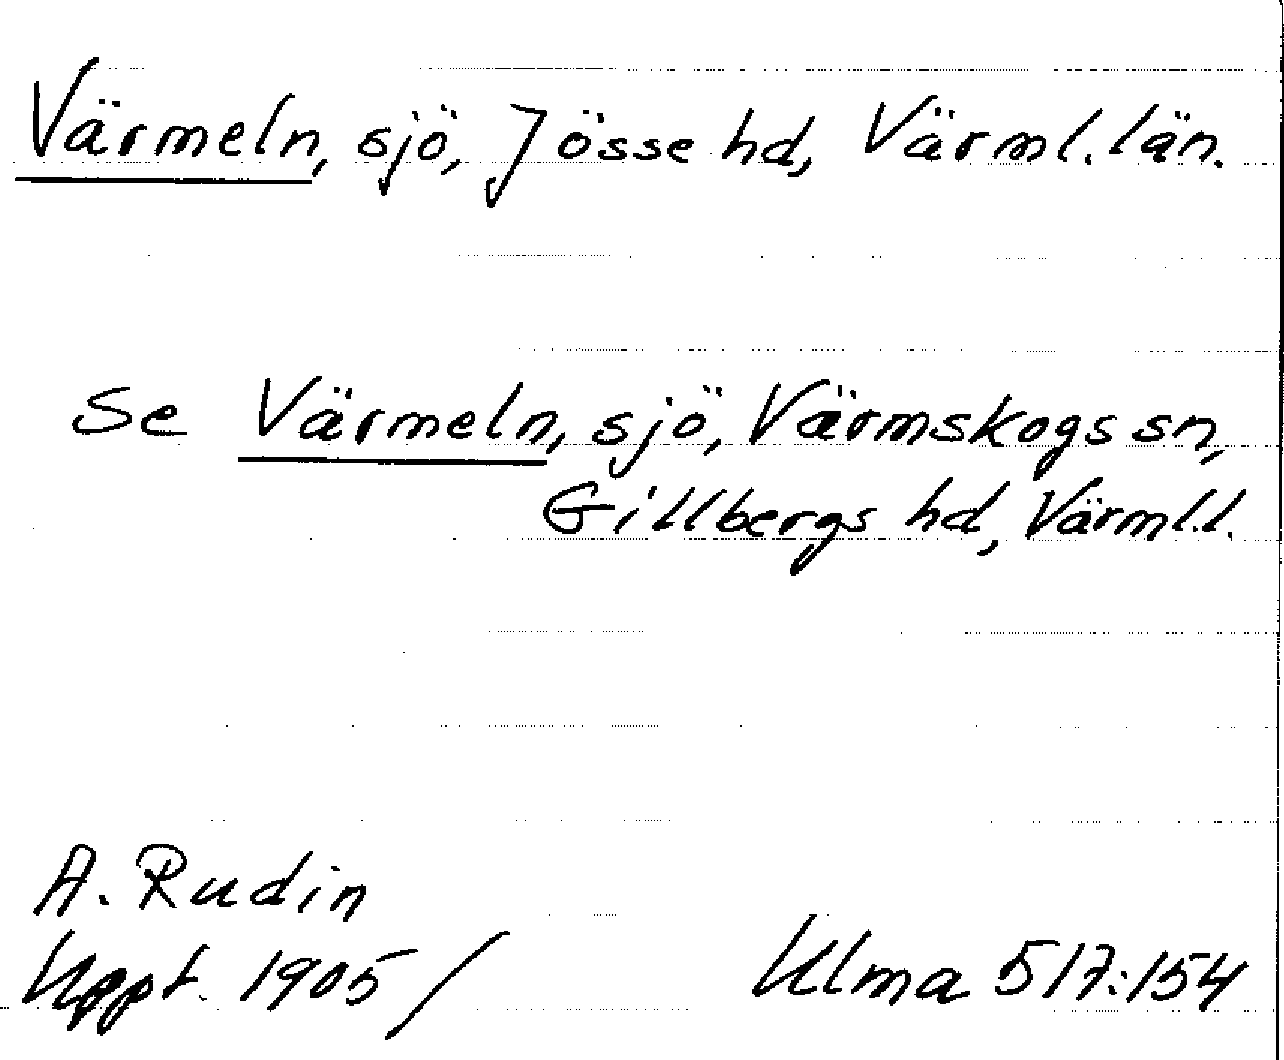 Värmeln, sjö, Jösse hd, Värml. län.
Se Värmeln, sjö, Värmskogs sn,
Gillbergs hd, Värml.l.
A. Rudin
Uppt. 1905 /
Ulma 517:154